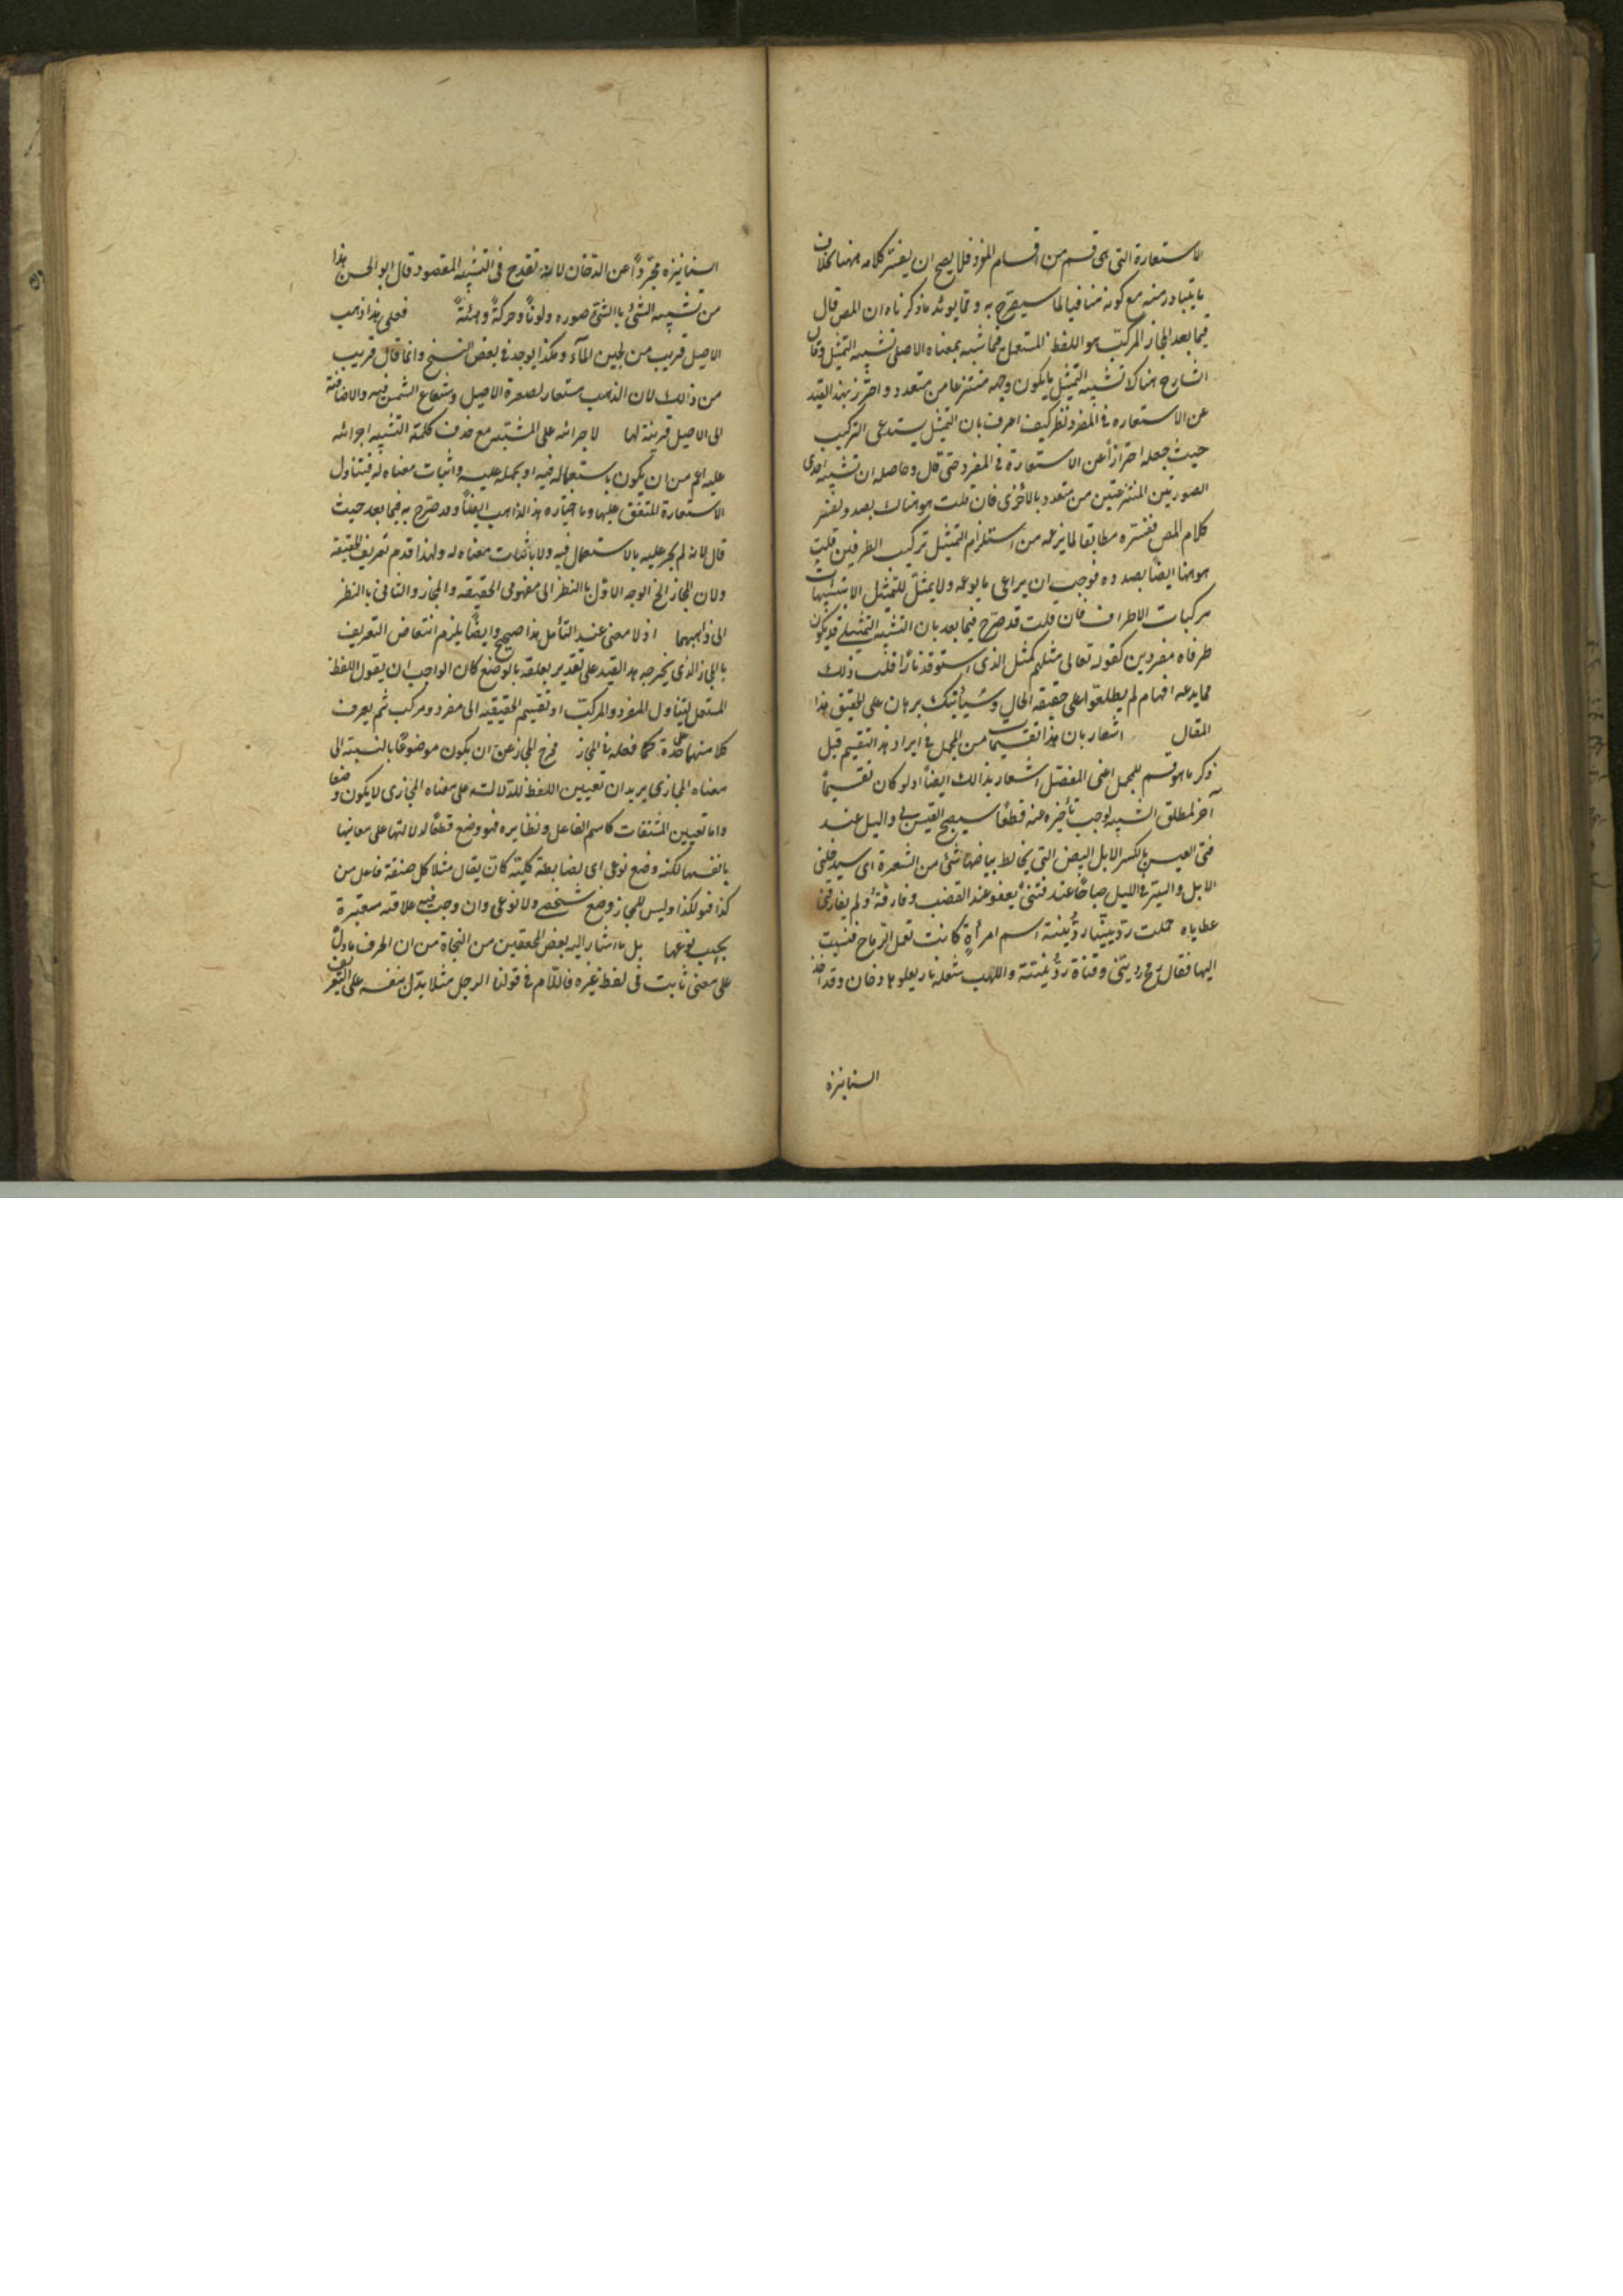 الاستعارة التى هى قسم من اقسام المفرد فلا يصح ان يفسر كلامه ههنا بخلاف
ما يتبادر منه مع كونه منافيا لما سيصرح به ومما يويد ما ذكرناه ان المص قال
فيما بعد المجاز المركب هو اللفظ المستعمل فيما شبه بمعناه الاصلى تشبيه التمثيل وقال
الشارح هناك تشبيه التمثيل ما يكون وجهه منتزعا من متعدد واحترز بهذا القيد
عن الاستعاره فى المفرد نظر كيف اعرف بان التمثيل يستدعى التركيب
حيث جعله احترازا عن الاستعارة فى المفرد حتى قال وحاصله ان تشبه احدى
الصورتين المنتزعتين من متعدد بالأخرى فان قلت هو هناك بصدد تفسير
كلام المص ففسره مطابقا لما يزعمه من استلزام التمثيل تركيب الطرفين قلت
هو ههنا ايضا بصدده فوجب ان يراعى ما يزعمه ولا يمثل للتمثيل الا بتشبيهات
مركبات الاطراف فان قلت قد صرح فيما بعد بان التشبيه التمثيلى قد يكون
طرفاه مفردين كقوله تعالى مثلهم كمثل الذى استوقد نارا قلت ذلك
مما يدعه افهام لم يطلعوا على حقيقة الحال وسيأتيك برهان على تحقيق هذا
المقال اشعار بان هذا تقسيما من المجمل فى ايراد هذا التقسيم قبل
ذكر ما هو قسم للمجمل اعنى المفصل اشعار بذالك ايضا اذ لو كان تقسيما
آخر لمطلق التشبيه لوجب تأخيره عنه قطعا سيصبح العيس بى والليل عند
فتى العيس بالكسر الابل البيض التى يخالط بياضها شئ من الشقرة اى سيدخلنى
الابل والسير فى الليل صباحا عند فتى يعفو عند الغضب وفارقته ولم يفارقنى
عطاياه حملت ردينيا ردينة اسم امرأة كانت تعمل الرماح فنسبت
اليها فقال رمح ردينى وقناة ردينية واللهب شعلة نار يعلوها دخان وقد اخذ
السنا نزه
السنا نزه مجردا عن الدخان لانه تقدح فى التشبيه المقصود قال ابو الحسن هذا
من تشبيه الشئ بالشئ صوره ولونا وحركة وهيئة فعلى هذا ذهب
الاصيل قريب من لجين المآء وهكذا يوجد فى بعض النسخ وانما قال قريب
من ذالك لان الذهب مستعار لصفرة الاصيل وشعاع الشمس فيه والاضافة
الى الاصيل قرينة لها لاجرائه على المشبه مع حذف كلمة التشبيه اجرائه
عليه اعم من ان يكون باستعماله فيه او بحمله عليه واثبات معناه له فيتناول
الاستعارة المتفق عليها وما اختاره هذا الذاهب ايضا وقد صرح به فيما بعد حيث
قال لانه لم يجر عليه بالاستعمال فيه ولا باثبات معناه له ولهذا قدم تعريف الحقيقة
ولان المجاز الخ الوجه الاول بالنظر الى مفهومى الحقيقة والمجاز والثانى بالنظر
الى ذاتيهما اذ لا معنى عند التأمل هذا صحيح وايضا يلزم انتقاض التعريف
بالمجاز الذى يخرجه هذا القيد على تقدير تعلقه بالوضع كان الواجب ان يقول اللفظ
المستعمل ليتناول المفرد والمركب او تقسيم الحقيقة الى مفرد ومركب ثم يعرف
كلا منهما على حدة كما فعله فى المجاز فخرج المجاز عن ان يكون موضوعا بالنسبة الى
معناه المجازى يريد ان تعيين اللفظ للدلالة على معناه المجازى لا يكون وضعا
واما تعيين المشتقات كاسم الفاعل ونظايره فهو وضع قطعا لدلالتها على معانيها
بانفسها لكنه وضع نوعى اى بضابطة كلية كان يقال مثلا كل صيغة فاعل من
كذا فهو لكذا وليس للمجاز وضع شخصى ولا نوعى وان وجب فيه علاقة معتبرة
بحسب نوعها بل ما اشار اليه بعض المحققين من النحاة من ان الحرف ما دل
على معنى ثابت فى لفظ غيره فاللام فى قولنا الرجل مثلا يدل بنفسه على التعريف